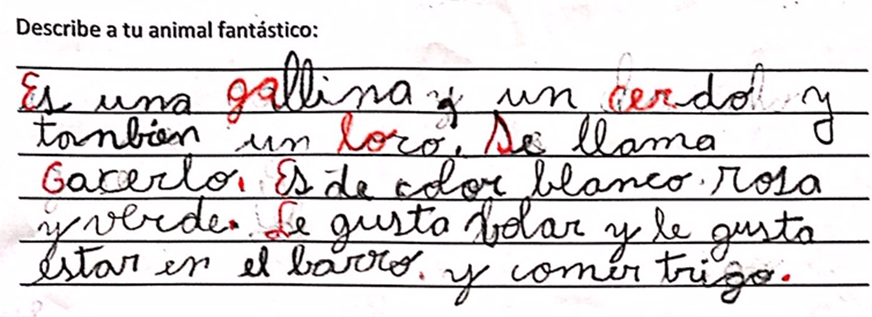 Describe a tu animal fantástico:
Es una gallina y un cerdo y
tanbien un loro. Se llama
Gacerlo. Es de color blanco. rosa
y verde. Le gusta bolar y le gusta
estar en el barro. y comer trigo.